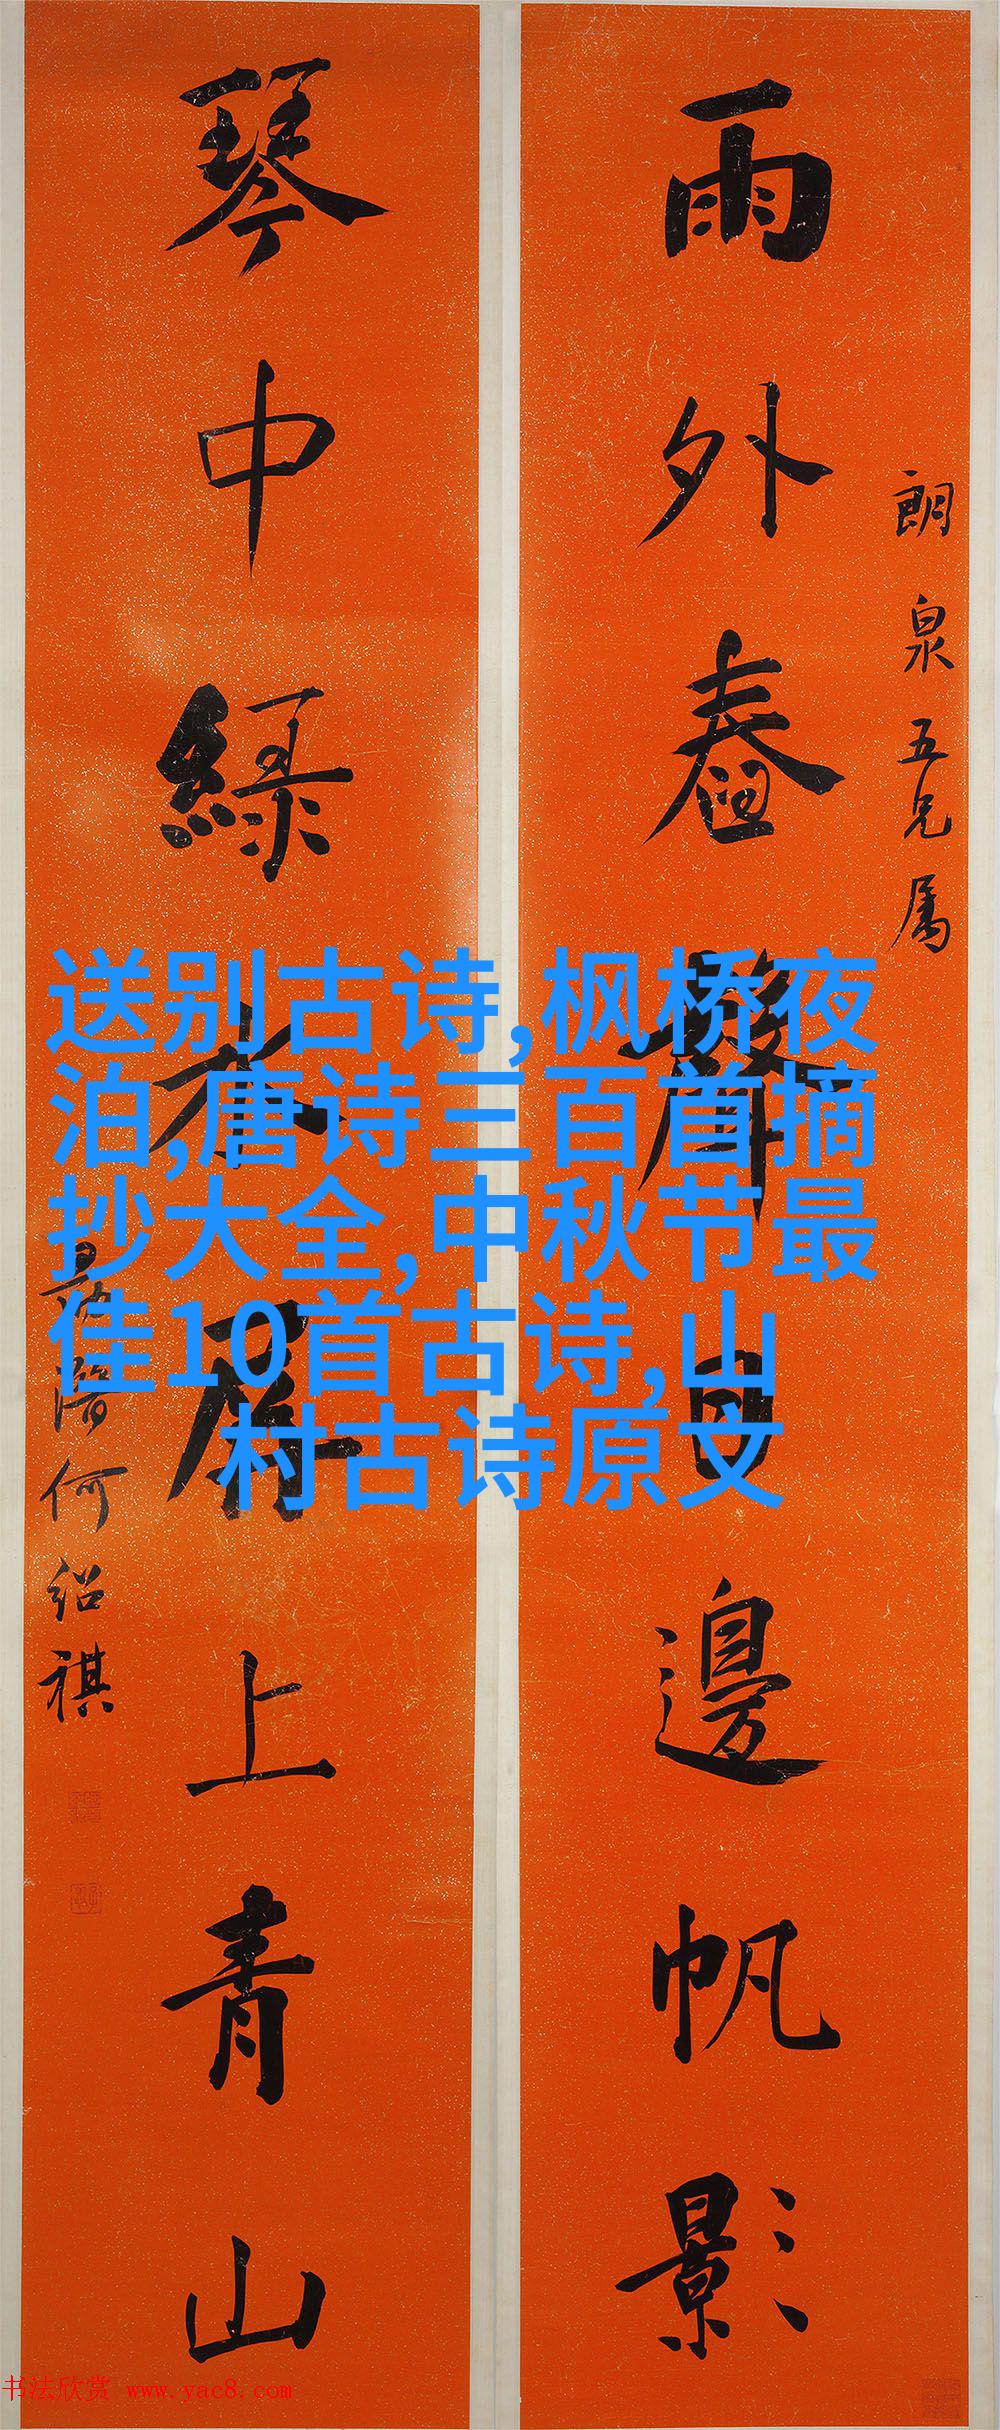 朗泉五兄属
雨外舂聲日邊帆影
琴中綠水屏上青山
何紹祺
送别古诗,枫桥夜
泊,唐诗三百首摘
抄大全,中秋节最
佳10首古诗,山
村古诗原文
书法欣赏 www.yac8.com